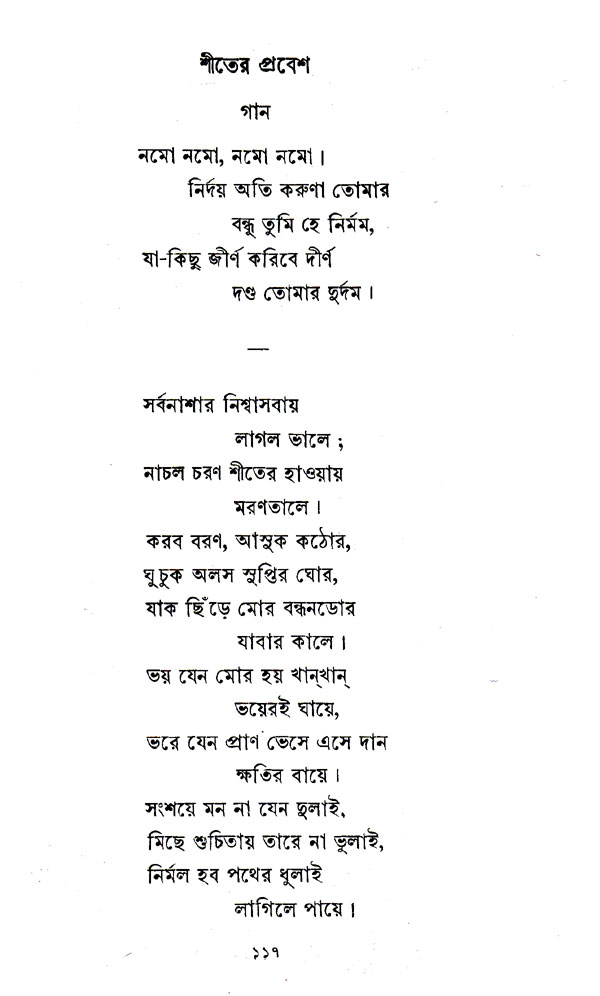 শীতের প্রবেশ
গান
নমো নমো, নমো নমো।
নির্দয় অতি করুণা তোমার
বন্ধু তুমি হে নির্মম,
যা-কিছু জীর্ণ করিবে দীর্ণ
দণ্ড তোমার দুর্দম।
—
সর্বনাশার নিশ্বাসবায়
লাগল ভালে;
নাচল চরণ শীতের হাওয়ায়
মরণতালে।
করব বরণ, আসুক কঠোর,
ঘুচুক অলস সুপ্তির ঘোর,
যাক ছিঁড়ে মোর বন্ধনডোর
যাবার কালে।
ভয় যেন মোর হয় খান্‌খান্‌
ভয়েরই ঘায়ে,
ভরে যেন প্রাণ ভেসে এসে দান
ক্ষতির বায়ে।
সংশয়ে মন না যেন দুলাই,
মিছে শুচিতায় তারে না ভুলাই,
নির্মল হব পথের ধুলাই
লাগিলে পায়ে।
১১৭